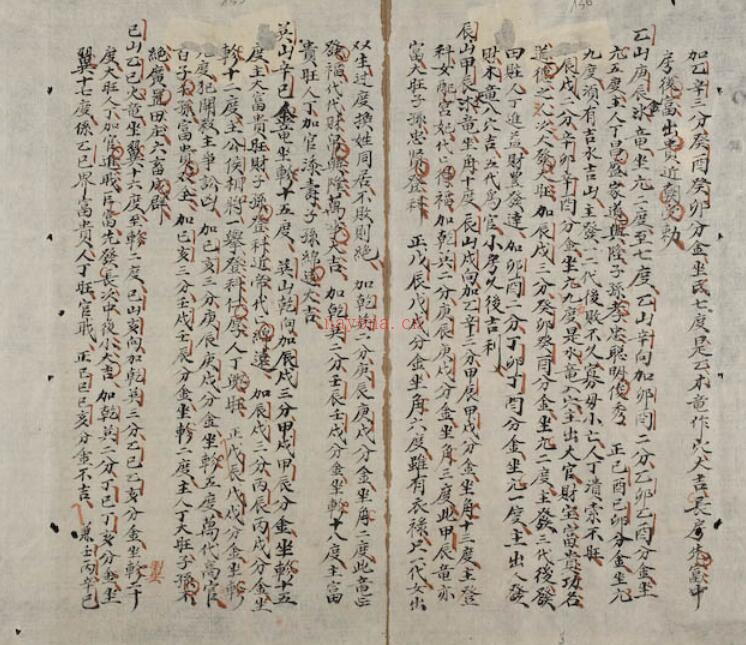 加乙辛三分癸酉癸卯分金坐氐七度是乙木竜作穴大吉長房朱
房後富出貴近
乙山庚辰氷竜坐亢二度至七度乙山辛向加卯酉二分乙卯乙酉分金坐
亢五度主人丁昌盛家道興隆子孫孝忠聰明俊秀 正己酉己卯分金坐亢
九度須有吉水吉山主發一二代後敗不久寡母小亡人丁潰索不旺
辰戌二分辛卯辛酉分金坐亢九度是氷竜入穴主出大官財宝富貴功名
道德之人次人發大旺 加辰戌三分癸卯癸酉分金坐亢二度主發三代後發
田旺人丁進益財累發達 加卯酉二分丁卯丁酉分金坐亢一度主一出人發
財木竜入穴吉五代為官小房久後吉利
辰山甲辰氷竜坐角十度辰山戌向加乙辛三分甲辰甲戌分金坐角十三度主登
科女配宮妃代口得禄加乾巽二分庚辰庚戌分金坐角三度此甲辰竜亦
富大旺子孫忠賢登科 正戊辰戊戌分金坐角六度雖有衣禄只一代女出
双生过度換姓同居不敗則絶 加乾 分庚辰庚戌分金坐角二度此竜正
發福代代財 興隆萬 大吉 加乾巽二分壬辰壬戌分金坐軫十八度主富
貴旺人丁加官添壽子孫綿遠大吉
巽山辛巳金竜坐軫十五度 巽山乾向加辰戌三分甲戌甲辰分金坐軫十五
度主大富貴旺財子孫登科近帝代口綿遠 加辰戌三分丙辰丙戌分金坐
軫十二度主公侯相將一舉登科仕 人丁興旺 正戊辰戊戌分金坐軫
九度犯關殺主爭訟凶 加巳亥三分庚辰庚戌分金坐軫五度萬代高官
百子千孫富貴 全 加巳亥三分壬戌壬辰分金坐軫二度主人丁大旺子孫不
絶廣置田庄六畜成群
巳山乙巳火竜坐翼十六度至軫二度巳山亥向加乾巽三分乙巳乙亥分金坐軫二十
度大旺人丁加官進職 房當先發長次中後小大吉 加乾巽二分丁巳丁亥分金坐
翼十七度係乙巳界富貴人丁旺官職 正己巳己亥分金不吉 兼壬丙辛巳
翼
nayona.cn